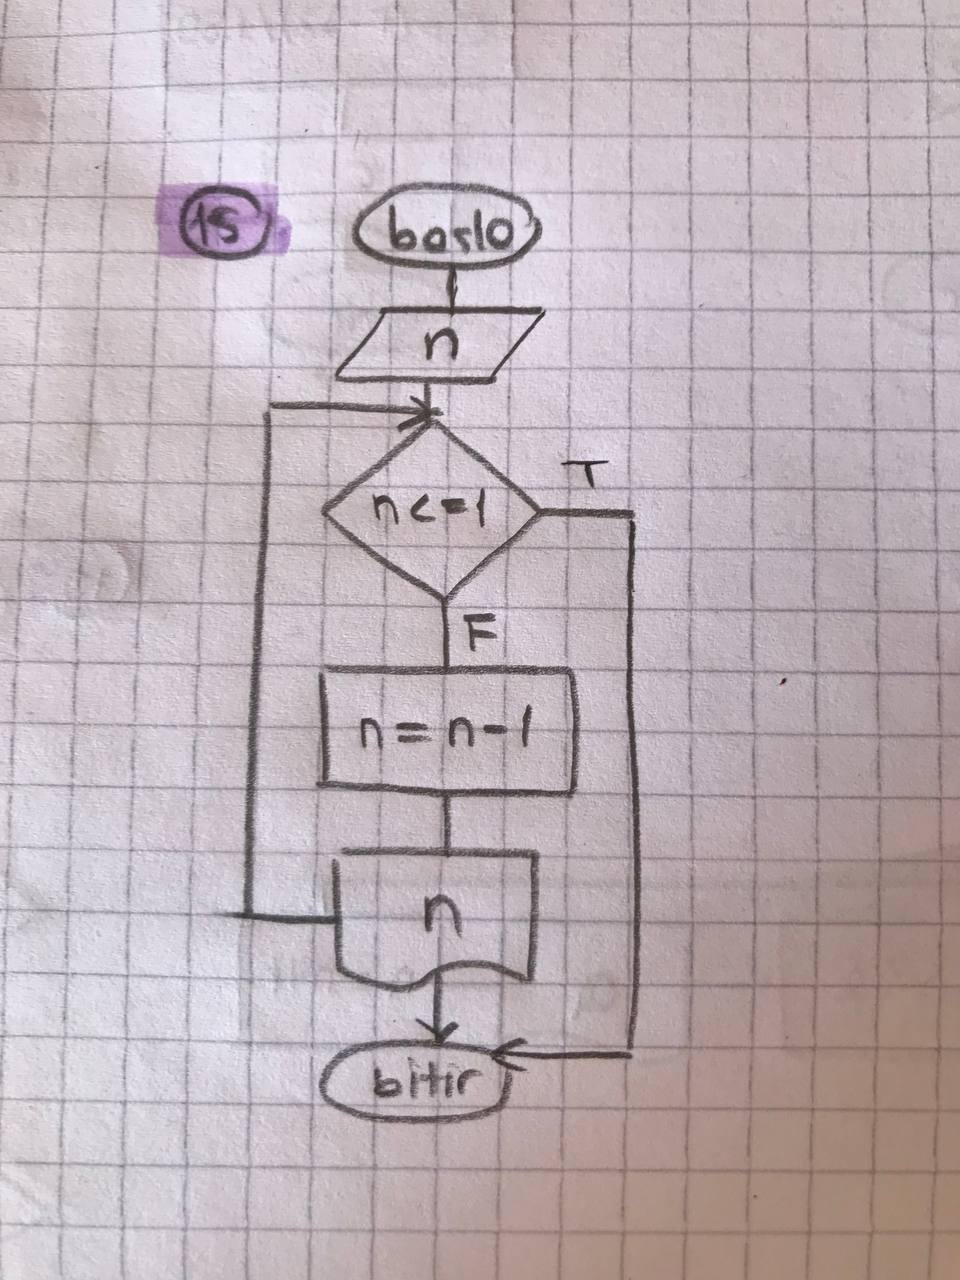 15
başla
n
n<=1
T
F
n=n-1
n
bitir